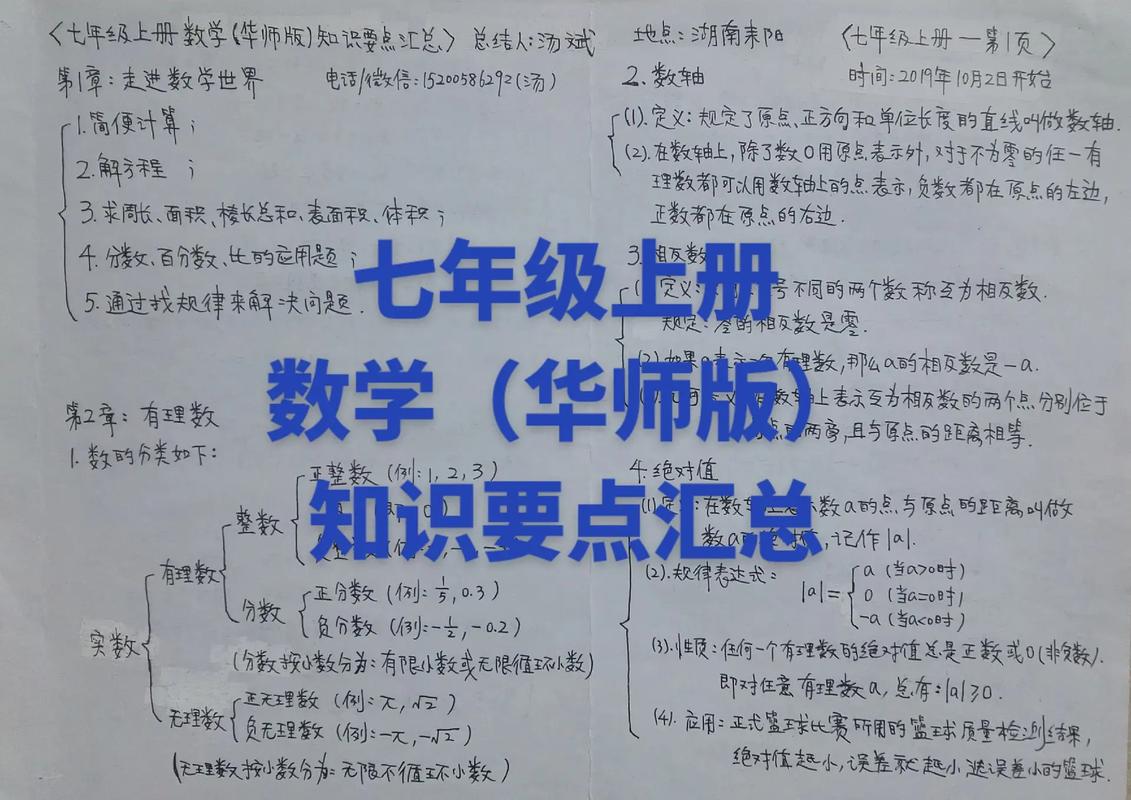 〈七年级上册数学(华师版)知识要点汇总〉 总结人:汤斌 地点:湖南耒阳 〈七年级上册—第1页〉
第1章:走进数学世界 电话/微信:15200586292(汤) 时间:2019年10月2日开始
1.简便计算;
2.解方程 ;
3.求周长、面积、棱长总和、表面积、体积;
4.分数、百分数、比的应用题;
5.通过找规律来解决问题.
第2章:有理数
1.数的分类如下:
实数
有理数
整数
正整数(例:1,2,3)
分数
正分数(例:1/5,0.3)
负分数(例:-1/2,-0.2)
(分数按小数分为:有限小数或无限循环小数)
无理数
正无理数(例:π,√2)
负无理数(例:-π,-√2)
(无理数按小数分为:无限不循环小数)
2.数轴
(1).定义:规定了原点、正方向和单位长度的直线叫做数轴.
(2).在数轴上,除了数0用原点表示外,对于不为零的任一有
理数都可以用数轴上的点表示,负数都在原点的左边,
正数都在原点的右边.
3.相反数
定义: 号不同的两个数称互为相反数.
规定:零的相反数是零.
(2).如果a表示一个有理数,那么a的相反数是-a.
数轴上表示互为相反数的两个点分别位于
点两旁,且与原点的距离相等.
4.绝对值
(1).定义:在数轴上表示数a的点与原点的距离叫做
数a的绝对值,记作|a|.
(2).规律表达式: |a|=
a (当a>0时)
0 (当a=0时)
-a (当a<0时)
(3).性质:任何一个有理数的绝对值总是正数或0(非负数).
即对任意有理数a,总有:|a|≥0.
(4).应用:正式篮球比赛所用的篮球质量检测结果,
绝对值越小,误差就越小,选误差小的篮球.
七年级上册
数学(华师版)
知识要点汇总